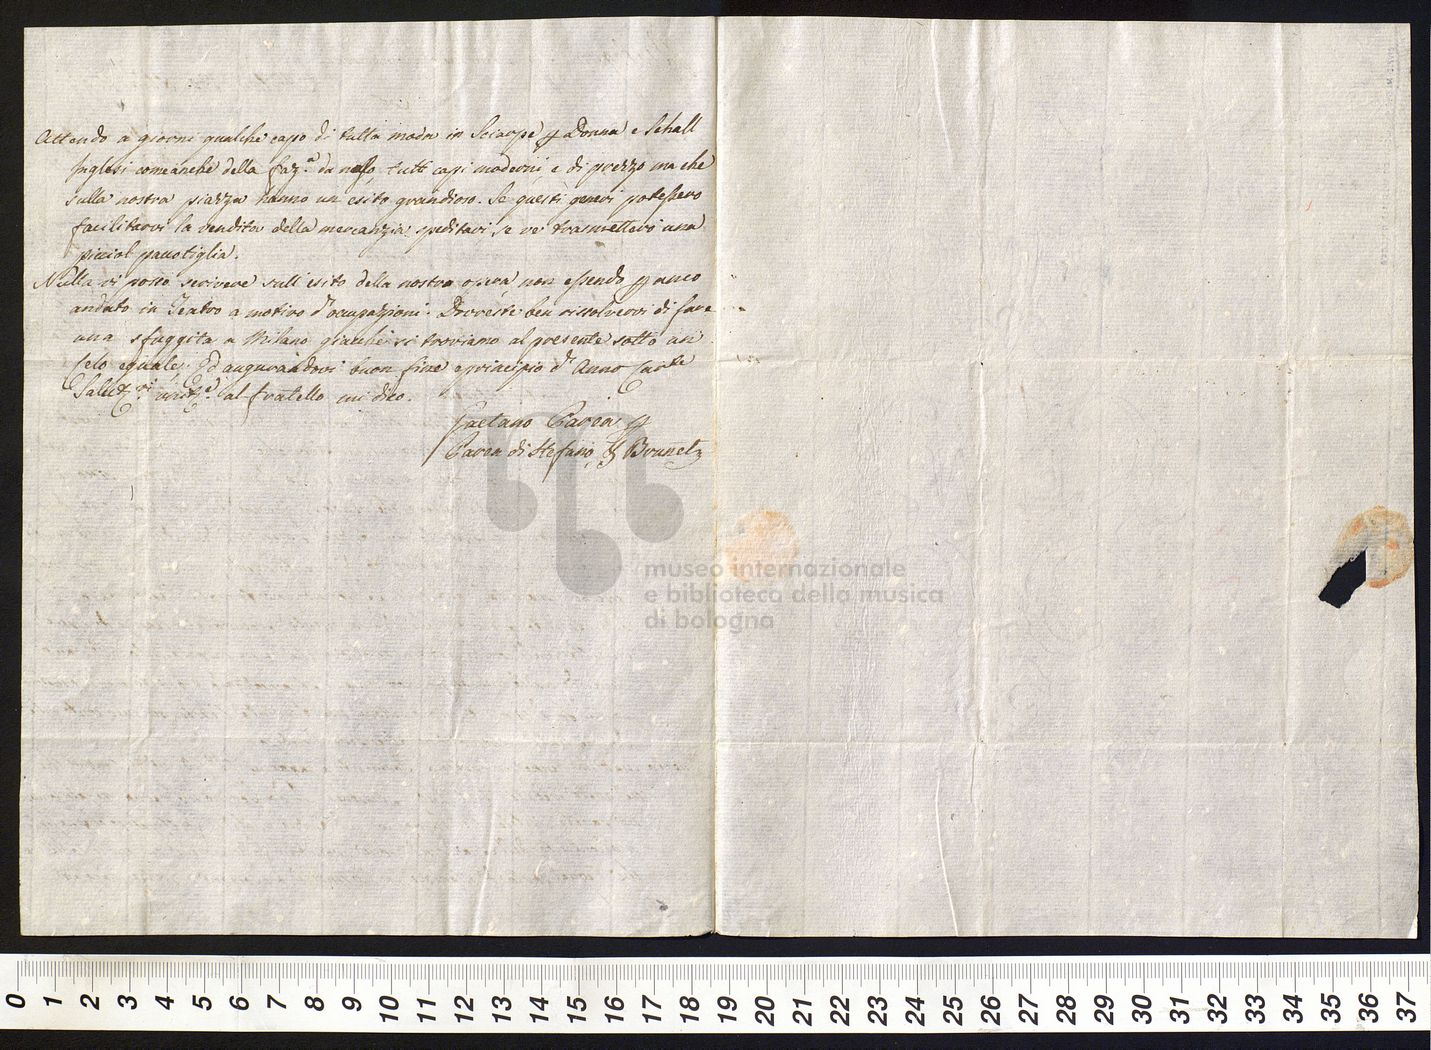 Attendo a giorni qualche capo di tutta moda in Sciarpe p Donna e Schall
Inglesi come anche della faz.a da naso, tutti capi moderni e di prezzo ma che
sulla nostra piazza hanno un esito grandioso. Se questi generi potessero
facilitarvi la vendita della mercanzia speditavi, se ve trasmetterò una
picciol pacotiglia.
Nulla vi posso scrivere sull'esito della nostra opera non essendo p anco
andato in Teatro a motivo d'occupazioni. Dovreste ben rissolvervi di fare
una sfuggita a Milano giacché ci troviamo al presente sotto un
Celo eguale. Ed augurandovi buon fine e principio d'Anno
al fratello mi dico.
Gaetano Pavea p
Pavea di Stefano, & Brunetz
museo internazionale
e biblioteca della musica
di bologna
0 1 2 3 4 5 6 7 8 9 10 11 12 13 14 15 16 17 18 19 20 21 22 23 24 25 26 27 28 29 30 31 32 33 34 35 36 37